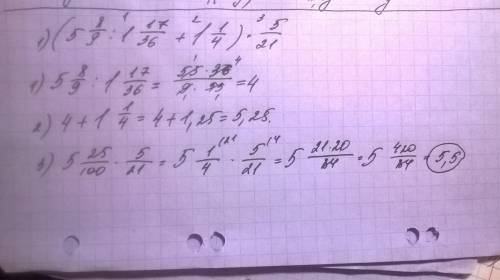 1) (5 8/9 :¹ 1 17/36 +² 1 1/4) ·³ 5/21
1) 5 8/9 : 1 17/36 = 53·36/9·53 = 4
2) 4 + 1 1/4 = 4 + 1,25 = 5,25.
3) 5 25/100 · 5/21 = 5 1/4 · 5/21 = 5 21·20/84 = 5 420/84 = 5,5